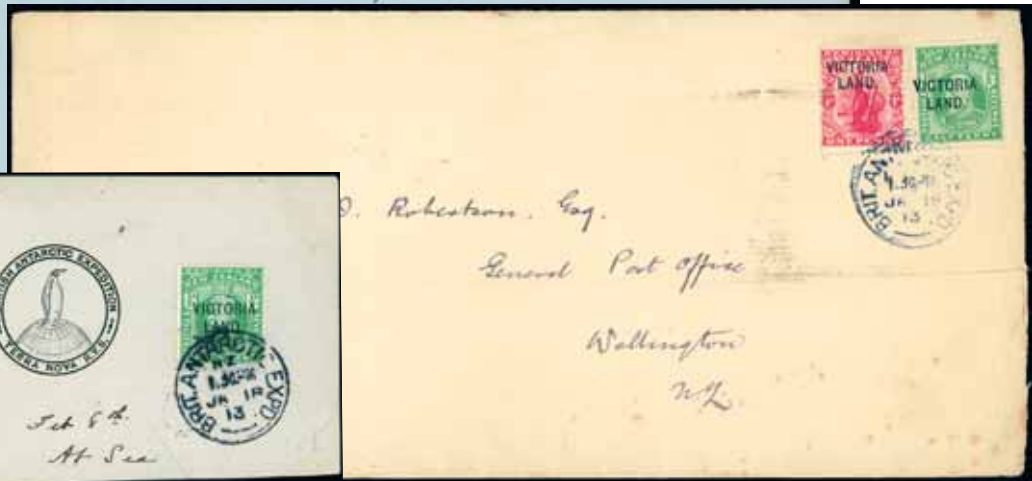 VICTORIA
LAND.
VICTORIA
LAND.
HALF PENNY
BRIT. ANTARCTIC EXPD
1.30PM
JA 18
13
Robertson. Esq.
General Post Office
Wellington
N.Z.
ANTARCTIC EXPEDITION
TERRA NOVA R.Y.S.
VICTORIA
LAND.
BRIT. ANTARCTIC EXPD
N.Z.
1.30PM
JA 18
13
Feb 8th.
At Sea